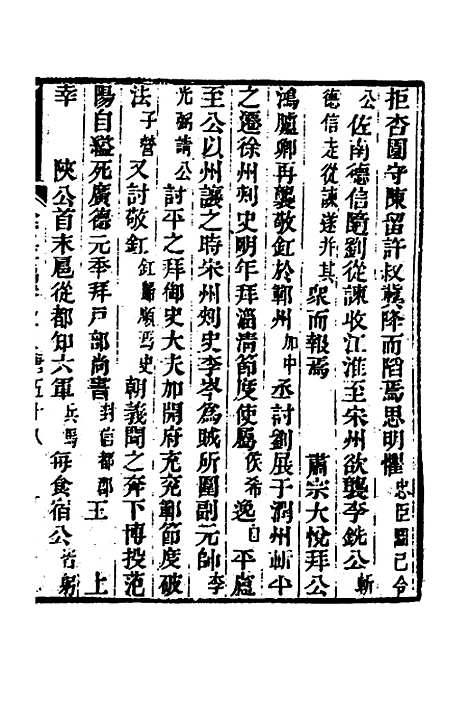 拒杏園守陳留許叔冀降而陷焉思明懼忠臣圖己令
公佐南德信隨劉從諫收江淮至宋州欲襲李銑公斬
德信走從諫遂并其眾而報焉 肅宗大悅拜公
鴻臚卿再襲敬釭於鄆州加中丞討劉展于潤州斬平
之遷徐州刺史明年拜淄清節度使屬侯希逸自平盧
至公以州讓之時宋州刺史李岑為賊所圍副元帥李
光弼請公討平之拜御史大夫加開府充兗鄆節度破
法子營又討敬釭釭歸順焉史朝義聞之奔下博投范
陽自縊死廣德元年拜戶部尚書封信都郡王 上
幸 陝公首末扈從都知六軍兵馬每食宿公皆躬